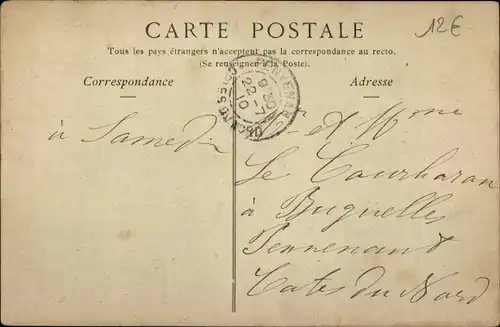 CARTE POSTALE
12€
Tous les pays étrangers n'acceptent pas la correspondance au recto.
(Se renseigner à la Poste).
Correspondance
Adresse
PENVENAN
9 30
22 - 7
10
CÔTES DU NORD
à Samedi
et Mme
Le Courharan
à Buguelles
Pennenant
Cotes du Nord